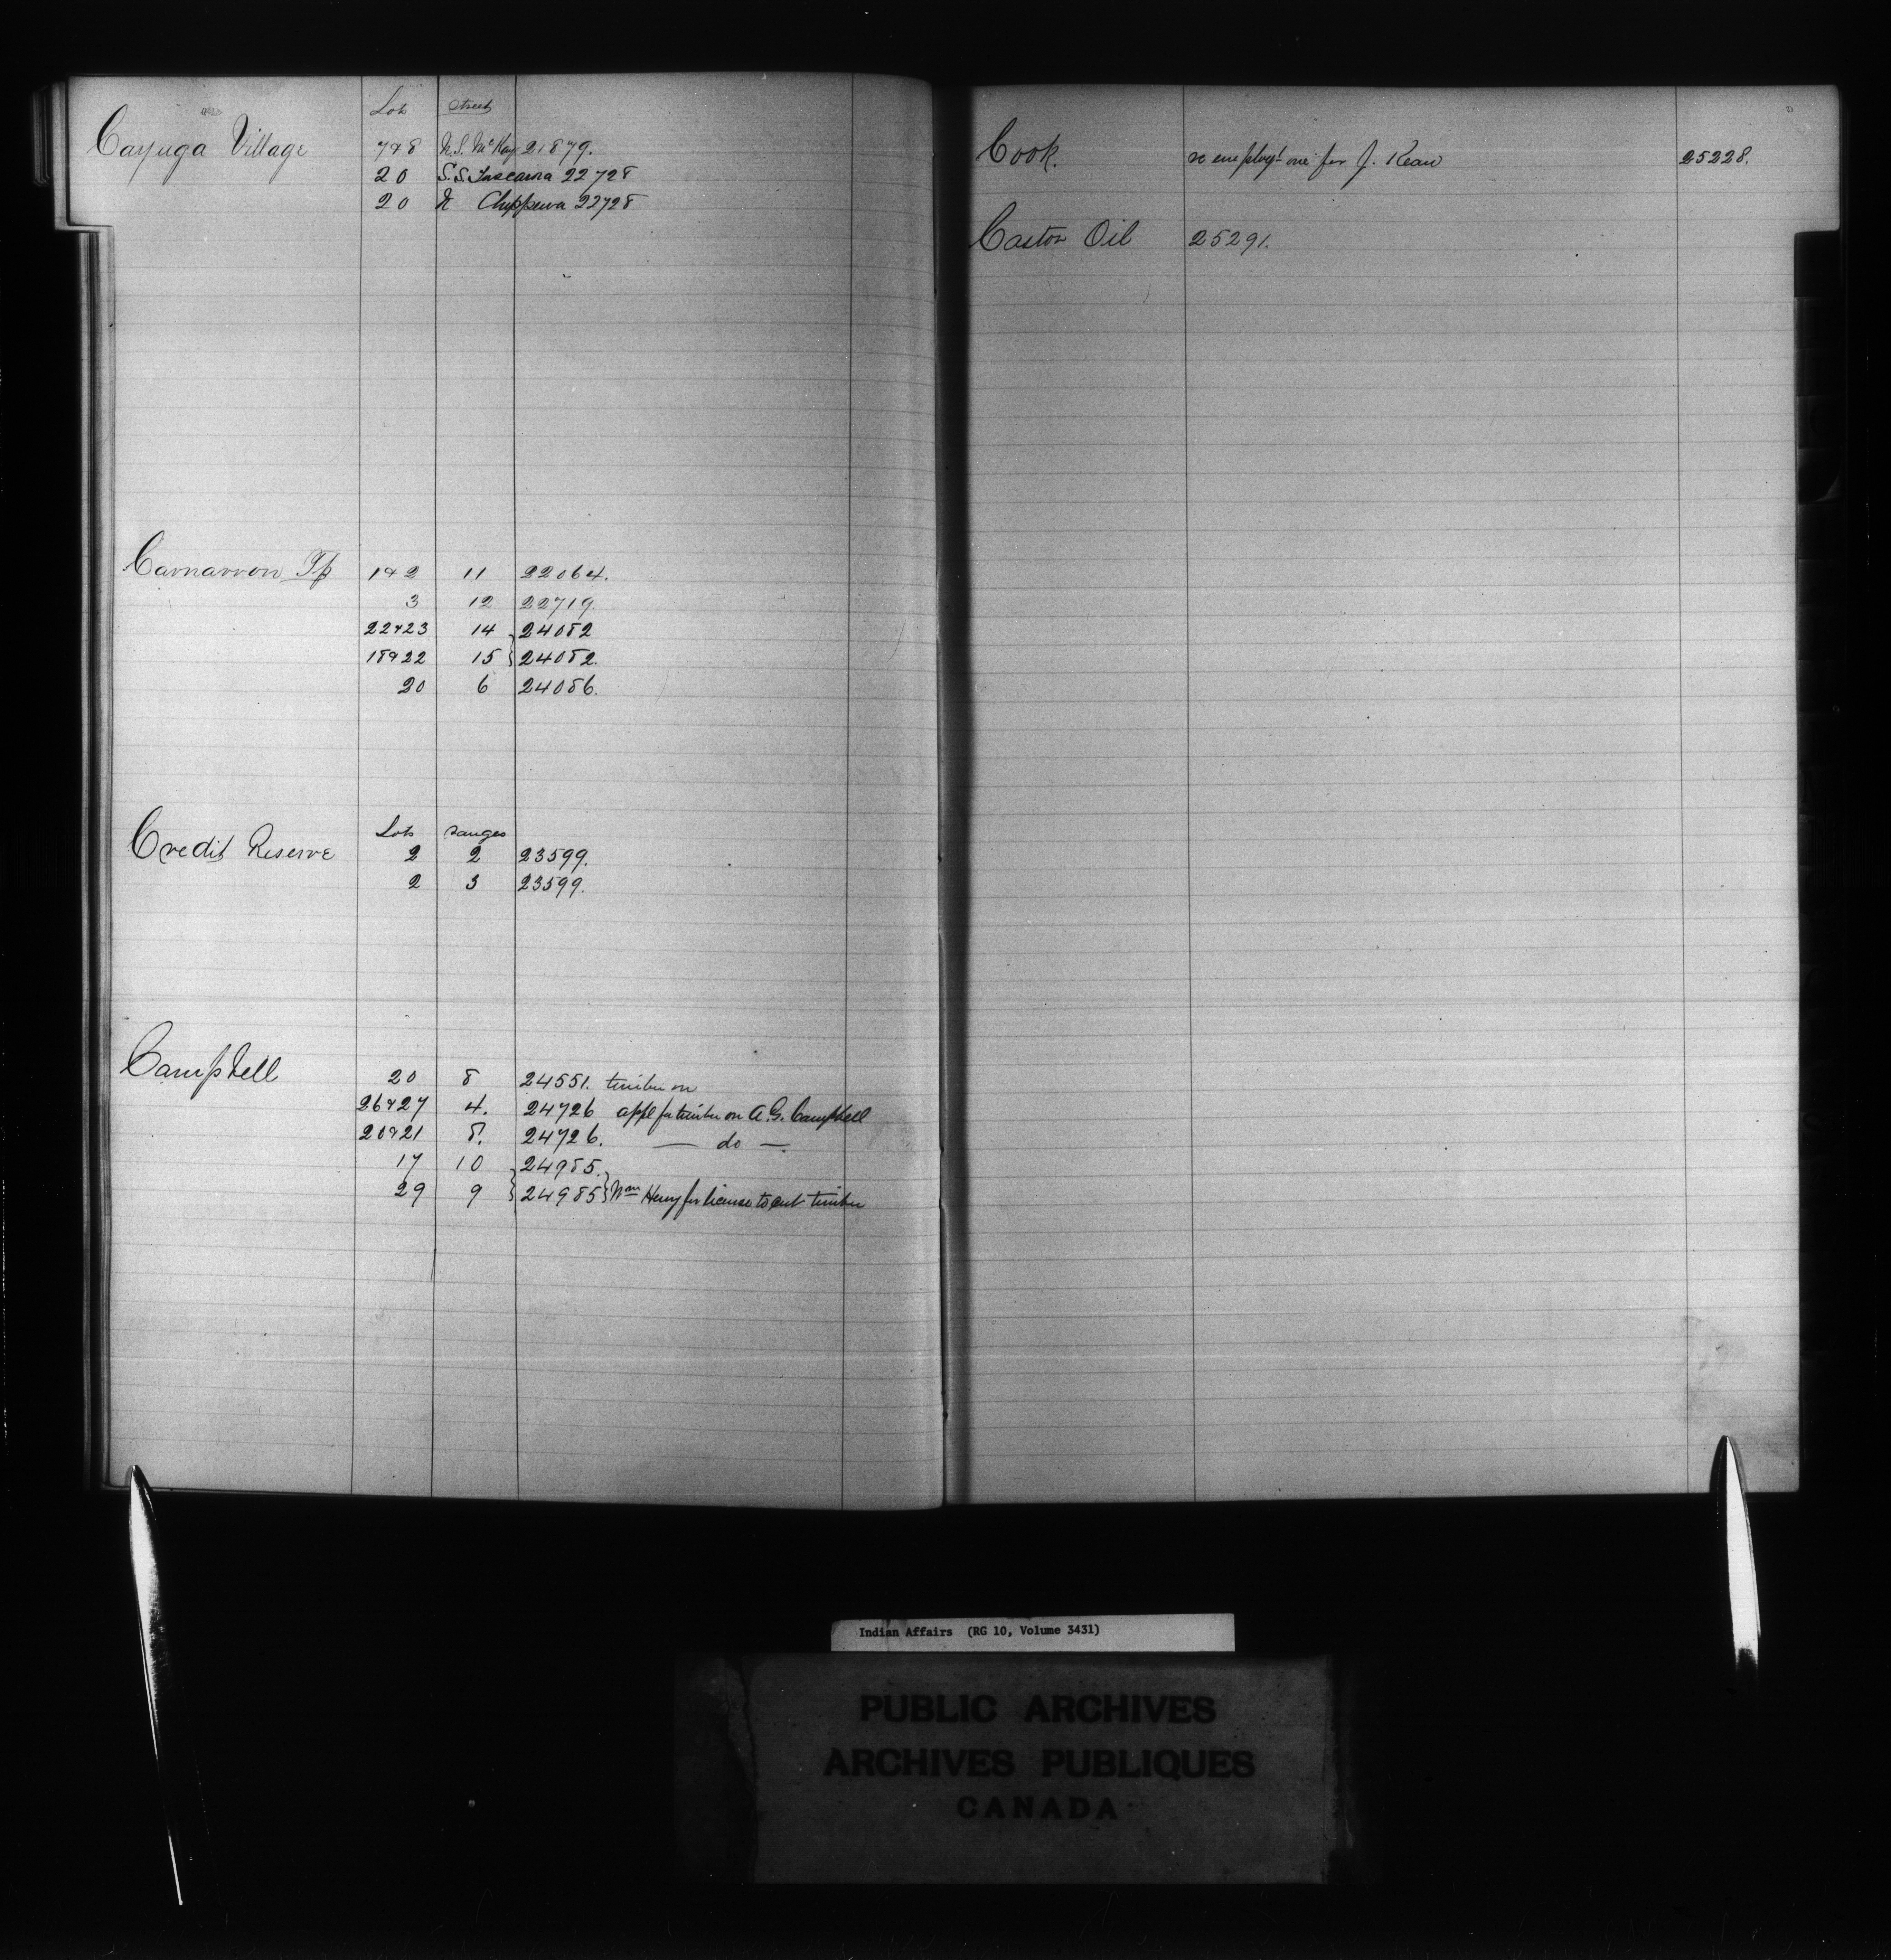 Lot Street
Cayuga Village 7 & 8 N.S. McKay 21879.
20 S.S. Tuscarora 22728
20 N Chippewa 22728
Carnarvon Tp 1 & 2 11 22064.
3 12 22719.
22 & 23 14 24082
18 & 22 15 24082.
20 6 24086.
Lots ranges
Credit Reserve 2 2 23599.
2 3 23599.
Campbell 20 8 24551. timber on
26 & 27 4. 24726 appl for timber on A.G. Campbell
20 & 21 8. 24726. — do —
17 10 24985.
29 9 24985 Wm Henry for license to cut timber
Cook. re employt one for J. Kean 25228.
Castor Oil 25291.
Indian Affairs (RG 10, Volume 3431)
PUBLIC ARCHIVES
ARCHIVES PUBLIQUES
CANADA